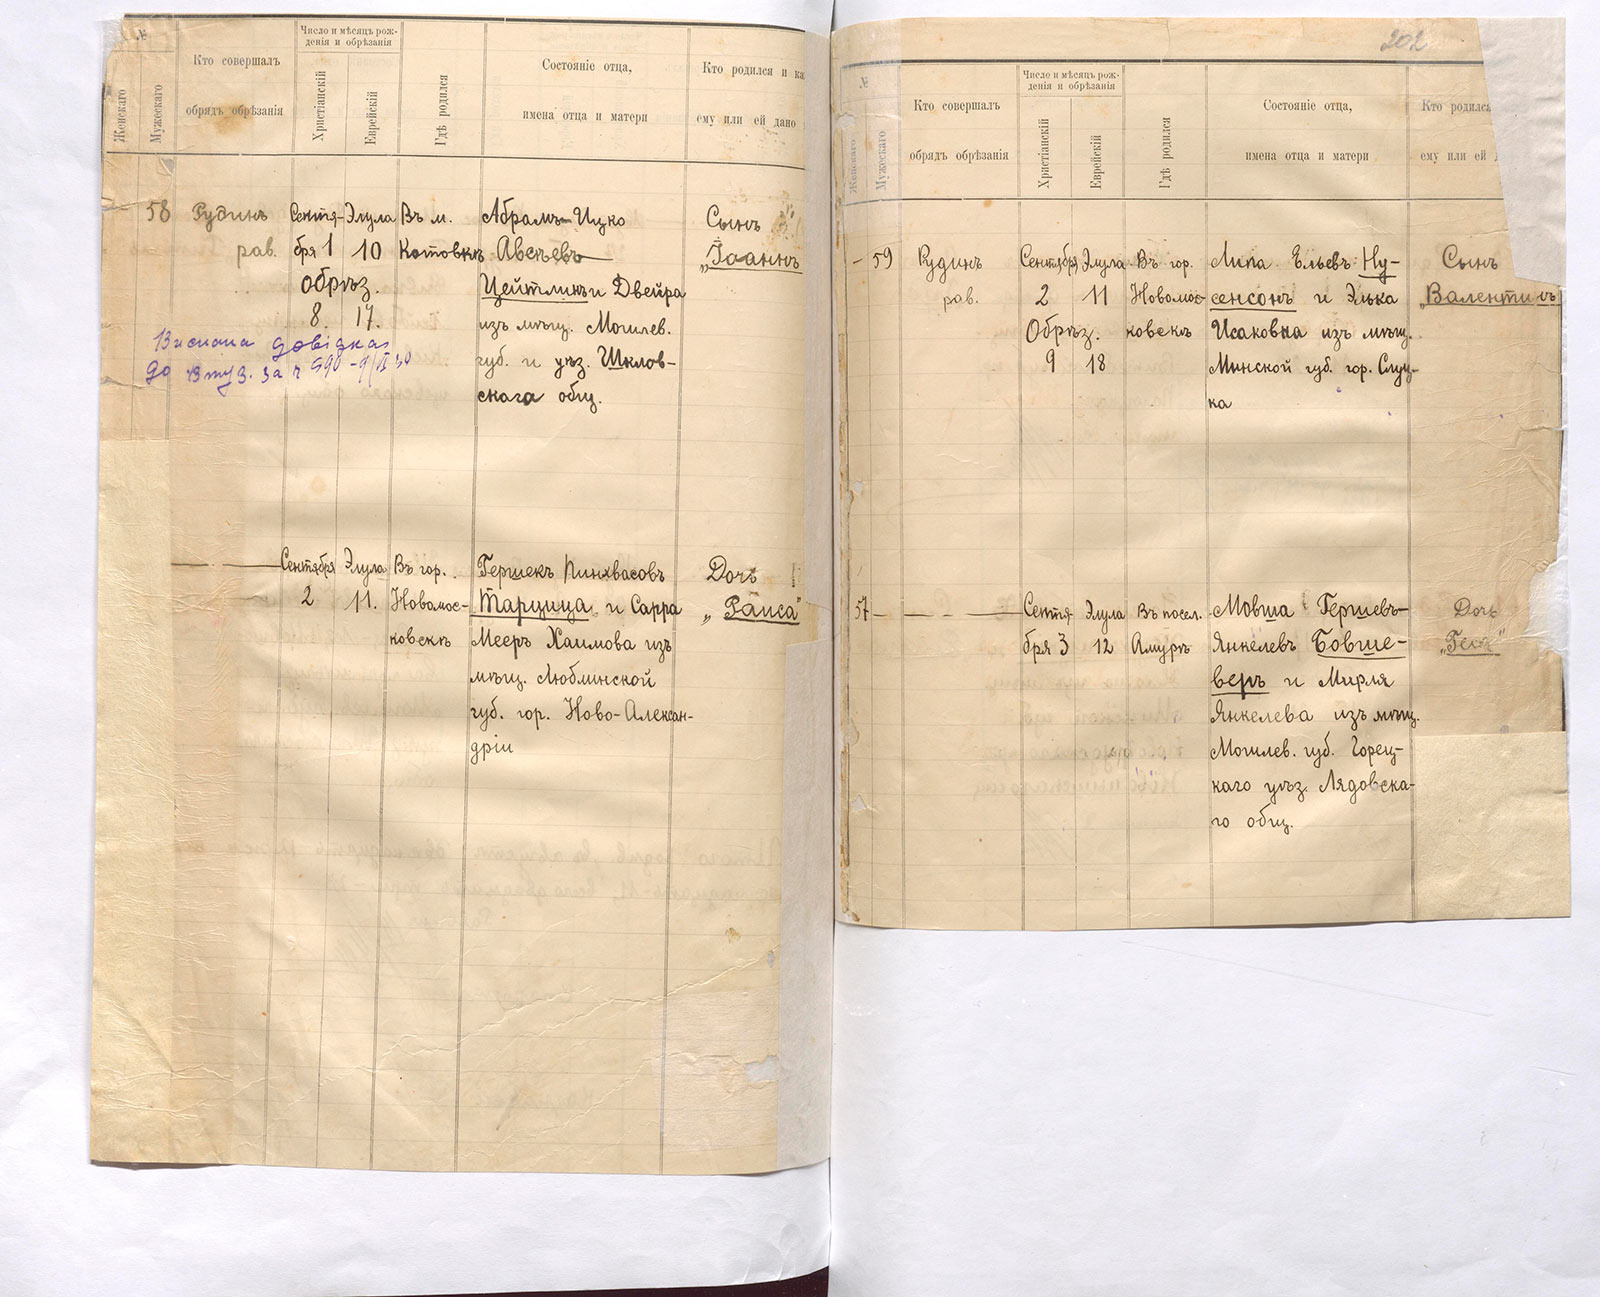 №
Женскаго
Мужескаго
Кто совершалъ
обрядъ обрѣзанія
Число и мѣсяцъ рож-
денія и обрѣзанія
Христіанскій
Еврейскій
Гдѣ родился
Состояніе отца,
имена отца и матери
Кто родился и ка
ему или ей дано
58
Рудинъ
рав.
Сентя-
бря 1
Обрѣз.
8.
Элула
10
17.
Въ м.
Котовкѣ
Абрамъ-Ицко
Авсѣевъ
Цейтлинъ и Двейра
изъ мѣщ. Могилев.
губ. и уѣз. Шклов-
скаго общ.
Сынъ
„Іоаннъ
Виснана довідка
до втуз. за ч 590 -9/II 30
Сентября
2
Элула
11.
Въ гор.
Новомос-
ковскѣ
Гершекъ Пинхвасовъ
Тарцица и Сарра
Мееръ Хаимова изъ
мѣщ. Люблинской
губ. гор. Ново-Алексан-
дріи
Дочь
„Раиса"
202
№
Женскаго
Мужескаго
Кто совершалъ
обрядъ обрѣзанія
Число и мѣсяцъ рож-
денія и обрѣзанія
Христіанскій
Еврейскій
Гдѣ родился
Состояніе отца,
имена отца и матери
Кто родился
ему или ей
- 59
Рудинъ
рав.
Сентября
2
Обрѣз.
9
Элула
11
18
Въ гор.
Новомос-
ковскѣ
Липа Ельевъ Ну-
сенсонъ и Элька
Исаковна изъ мѣщ.
Минской губ. гор. Слуц-
ка
Сынъ
„Валентинъ
57
Сентя-
бря 3
Элула
12
Въ посел.
Амурѣ
Мовша Гершевъ-
Янкелевъ Бовше-
веръ и Мирля
Янкелева изъ мѣщ.
Могилев. губ. Горец-
каго уѣз. Лядовска-
го общ.
Дочь